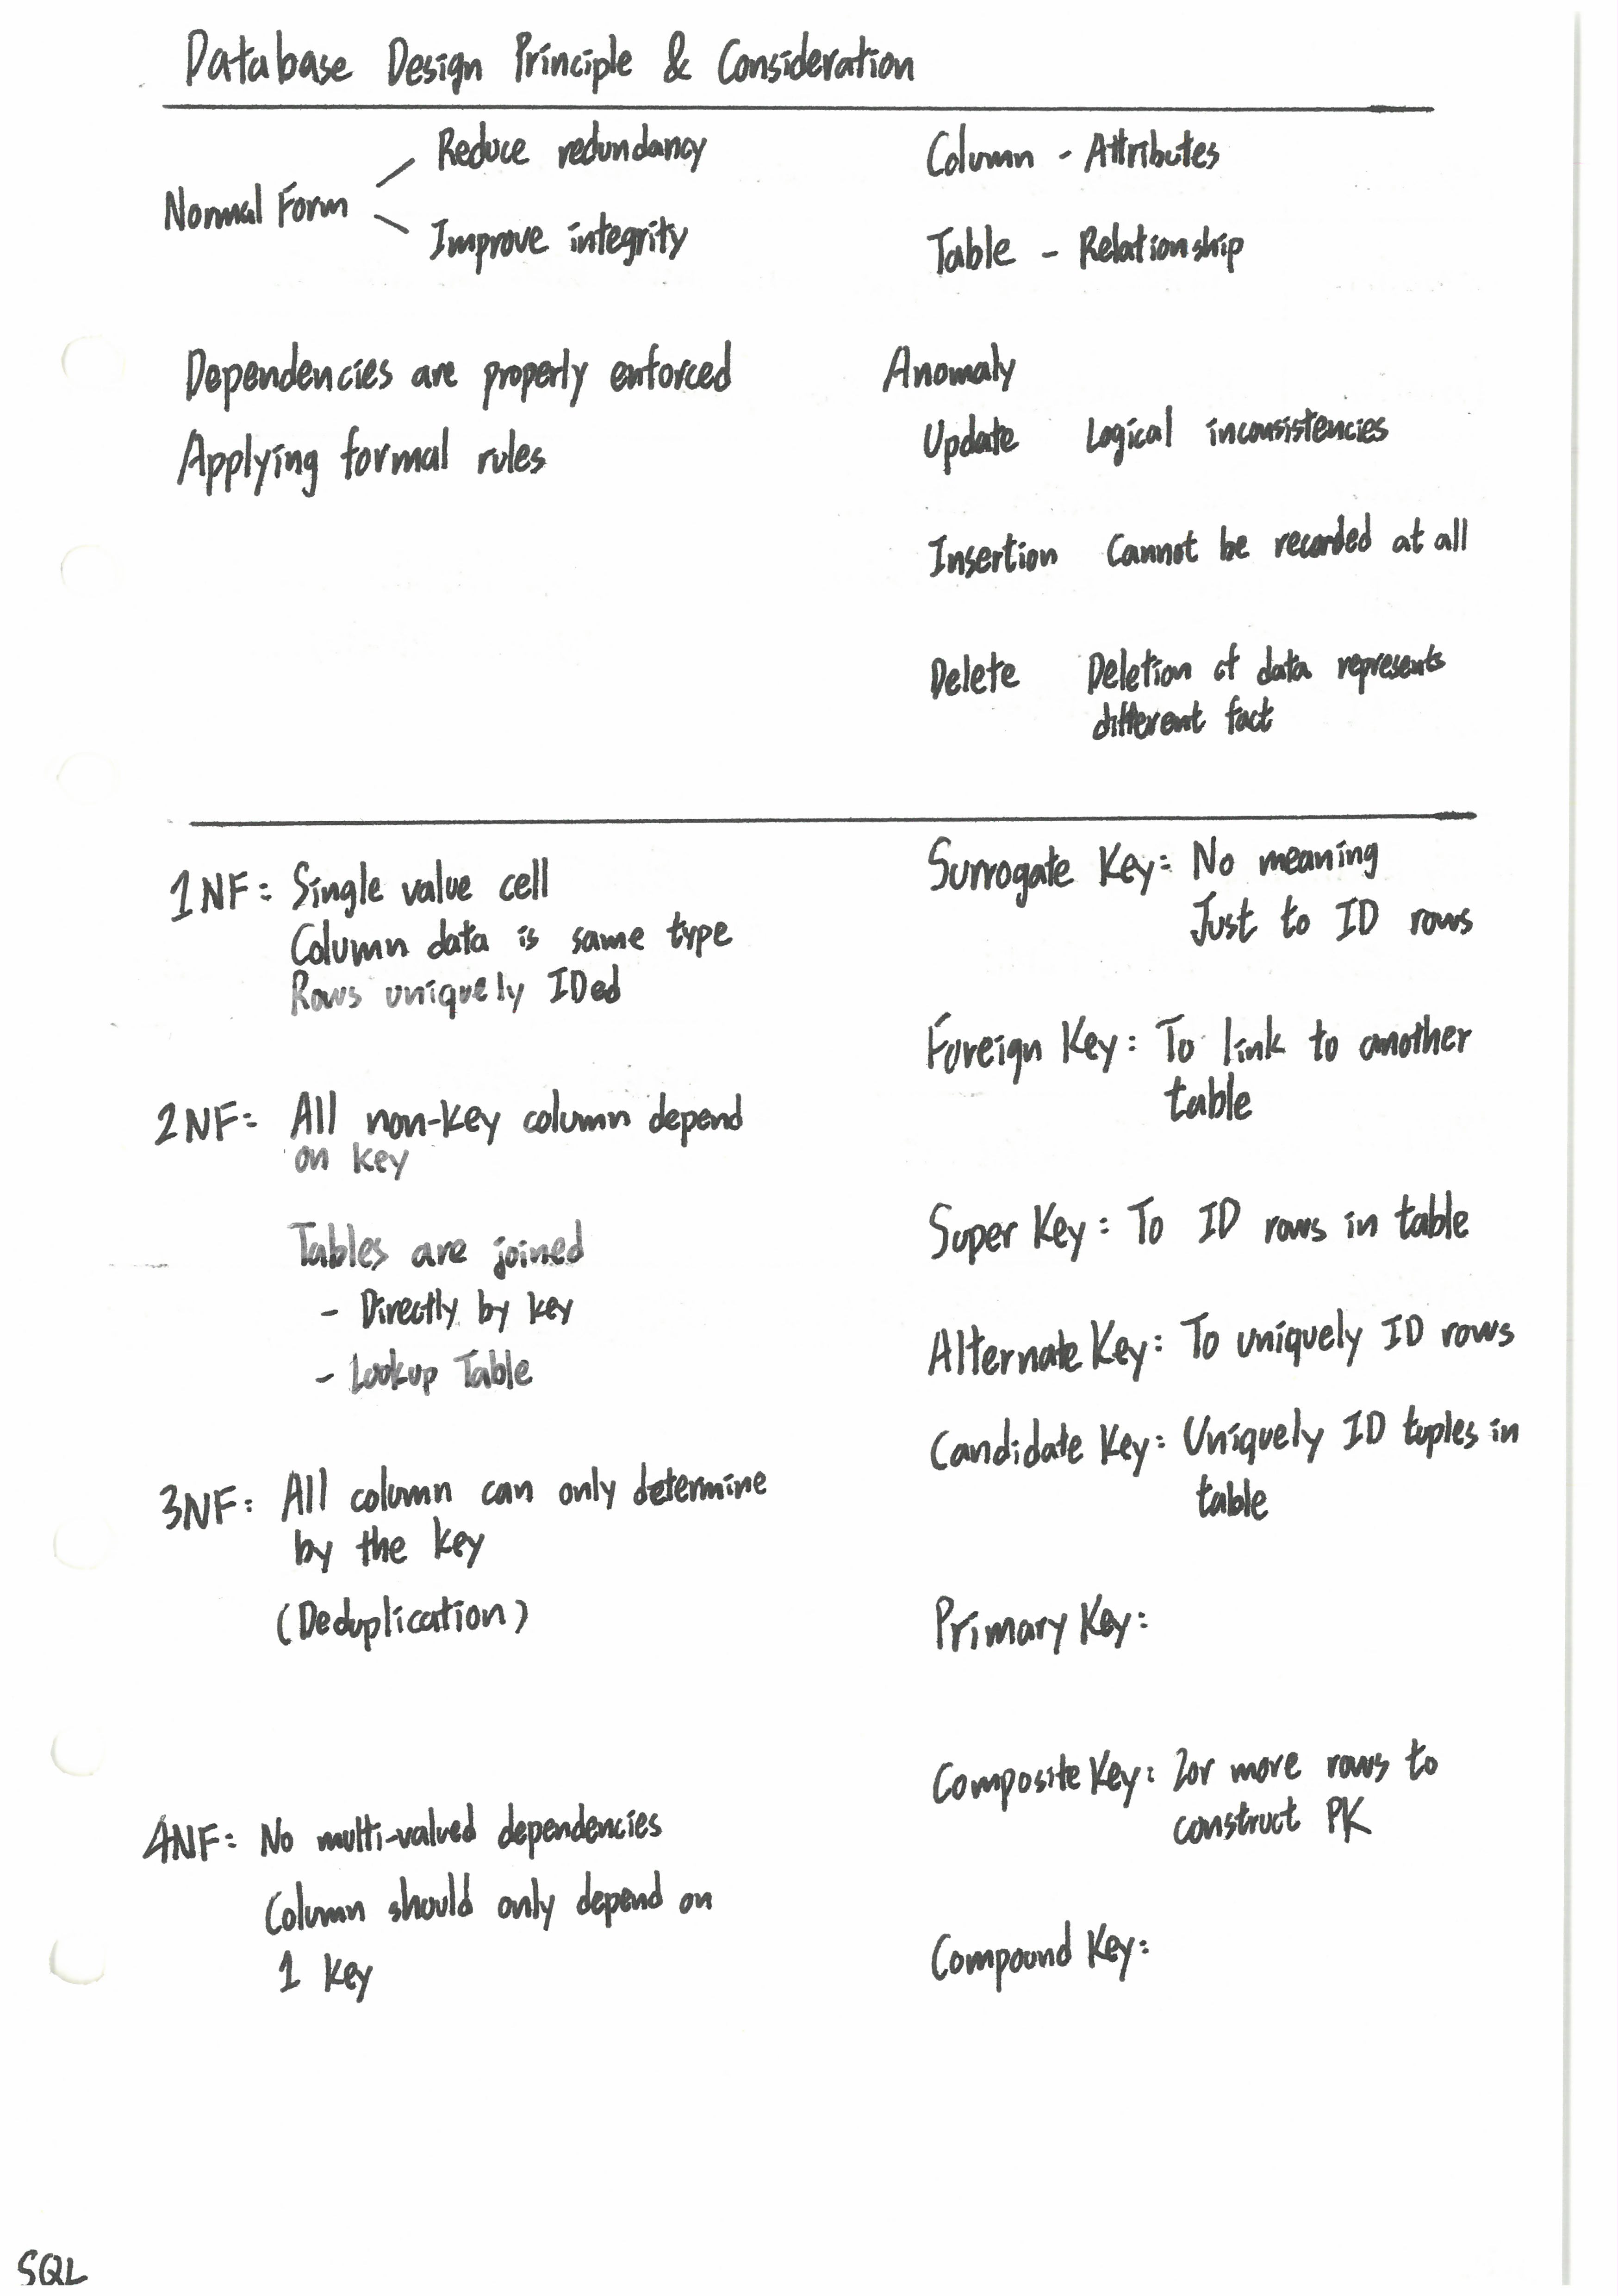 Database Design Principle & Consideration
Normal Form
Reduce redundancy
Improve integrity
Column - Attributes
Table - Relationship
Dependencies are properly enforced
Applying formal rules
Anomaly
Update Logical inconsistencies
Insertion Cannot be recorded at all
Delete Deletion of data represents
different fact
1NF: Single value cell
Column data is same type
Rows uniquely IDed
2NF: All non-key column depend
on key
Tables are joined
- Directly by key
- Lookup Table
3NF: All column can only determine
by the key
(Deduplication)
4NF: No multi-valued dependencies
Column should only depend on
1 key
Surrogate Key: No meaning
Just to ID rows
Foreign Key: To link to another
table
Super Key: To ID rows in table
Alternate Key: To uniquely ID rows
Candidate Key: Uniquely ID tuples in
table
Primary Key:
Composite Key: 2or more rows to
construct PK
Compound Key:
SQL